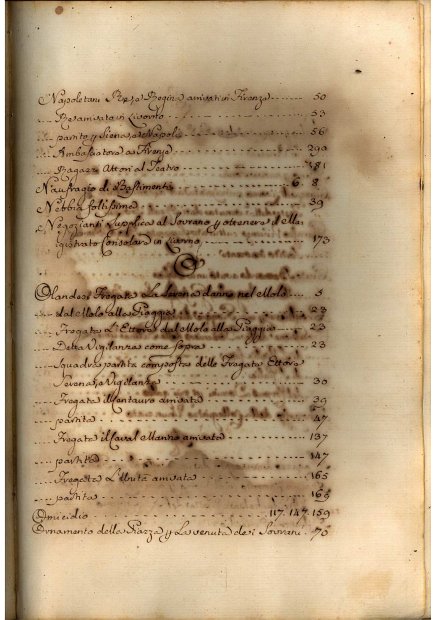 Napoletani Re, e Regina arrivati in Firenze ....... 50
.... Retarrivata in Livorno ............ 53
.... partito p Siena, e Napoli ............ 56
.... Ambasciatore a Firenze ............ 290
.... Ragazzi Attori al Teatro ............ 281
Naufragio di Bastimenti ............ 6. 8
Nebbia foltissima ............ 39
Negozianti Supplica al Sovrano p ottenere il Ma
gistrato Consolare in Livorno ............ 173
O
Olandesi Fregata La Serena danno nel Molo .. 5
.... dal Molo alla Piaggia ............ 23
.... Fregata L'Ettore dal Molo alla Piaggia ... 23
.... Detta Vigilanza come sopra ............ 23
.... Squadra partita composta delle Fregate Ettore
Serena, e Vigilanza ............ 30
.... Fregata il Centauro arrivata ............ 39
.... partita ............ 47
.... Fregata il arrivata ............ 137
.... partita ............ 147
.... Fregata L'Unità arrivata ............ 165
.... partita ............ 165
Omicidio ............ 117. 147. 159
Ornamento della Piazza p La venuta de i Sovrani .. 75